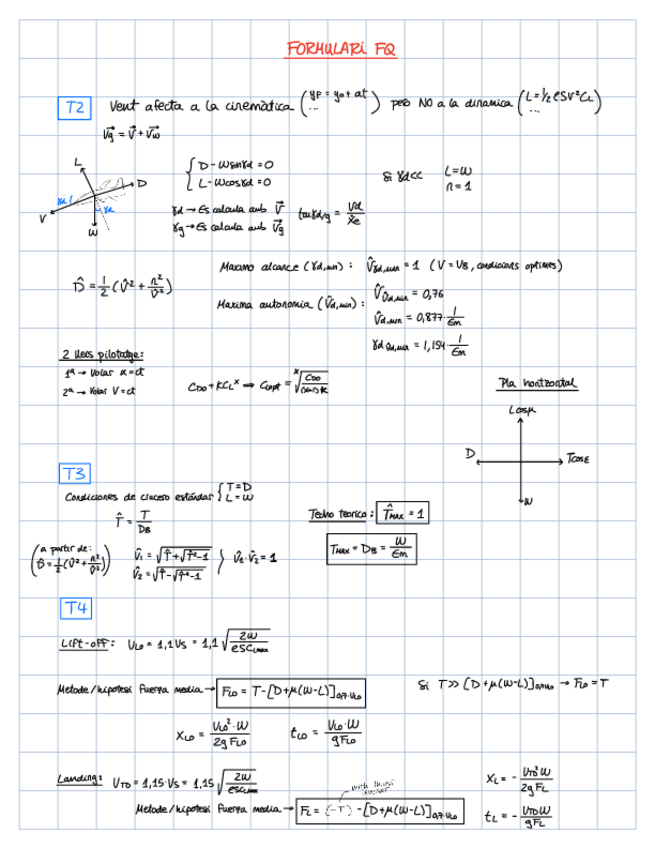 FORMULARI FQ
T2 Vent afecta a la cinemàtica (yp = y0 + at ...) però NO a la dinamica (L = 1/2 ρSV²CL ...)
V⃗g = V⃗ + V⃗w
L
D
V
γd
γd
W
{ D - Wsinγd = 0
L - Wcosγd = 0
Si γd<< L=W
n=1
γd → Es calcula amb V⃗
γg → Es calcula amb V⃗g
tanγd/g = Vd/ẋe
D̂ = 1/2 (V̂² + n²/V̂²)
Maximo alcance (γd,min): V̂γd,min = 1 (V = VB, condicions optimes)
Maxima autonomia (V̂d,min): V̂V̂d,min = 0,76
V̂d,min = 0,877 · 1/Em
γd V̂d,min = 1,154 · 1/Em
2 lleis pilotatge:
1ª → Volar α=ct
2ª → Volar V=ct
CD0 + KCL^x ⇒ CLopt =
Pla horitzontal
Lcosμ
D
Tcosε
W
T3
Condiciones de crucero estándar { T=D
L=W
T̂ = T/DB
Techo teorico: T̂MAX = 1
TMAX = DB = W/Em
(a partir de:
D̂ = 1/2 (V̂² + n²/V̂²))
V̂1 = √(T̂+√(T̂²-1))
V̂2 = √(T̂-√(T̂²-1))
} V̂1·V̂2 = 1
T4
Lift-off: VLO = 1,1 VS = 1,1 √(2W/ρSCLmax)
Metode/hipotesi Fuerza media → FLO = T-[D+μ(W-L)]0,7·VLO
Si T>> [D+μ(W-L)]0,7VLO → FLO = T
xLO = VLO²·W/2gFLO
tLO = VLO·W/gFLO
Landing: VTD = 1,15·VS = 1,15 √(2W/ρSCLmax)
Metode/hipotesi Fuerza media → FL = (-T) -[D+μ(W-L)]0,7·VLO
xL = - VTD²W/2gFL
tL = - VTDW/gFL